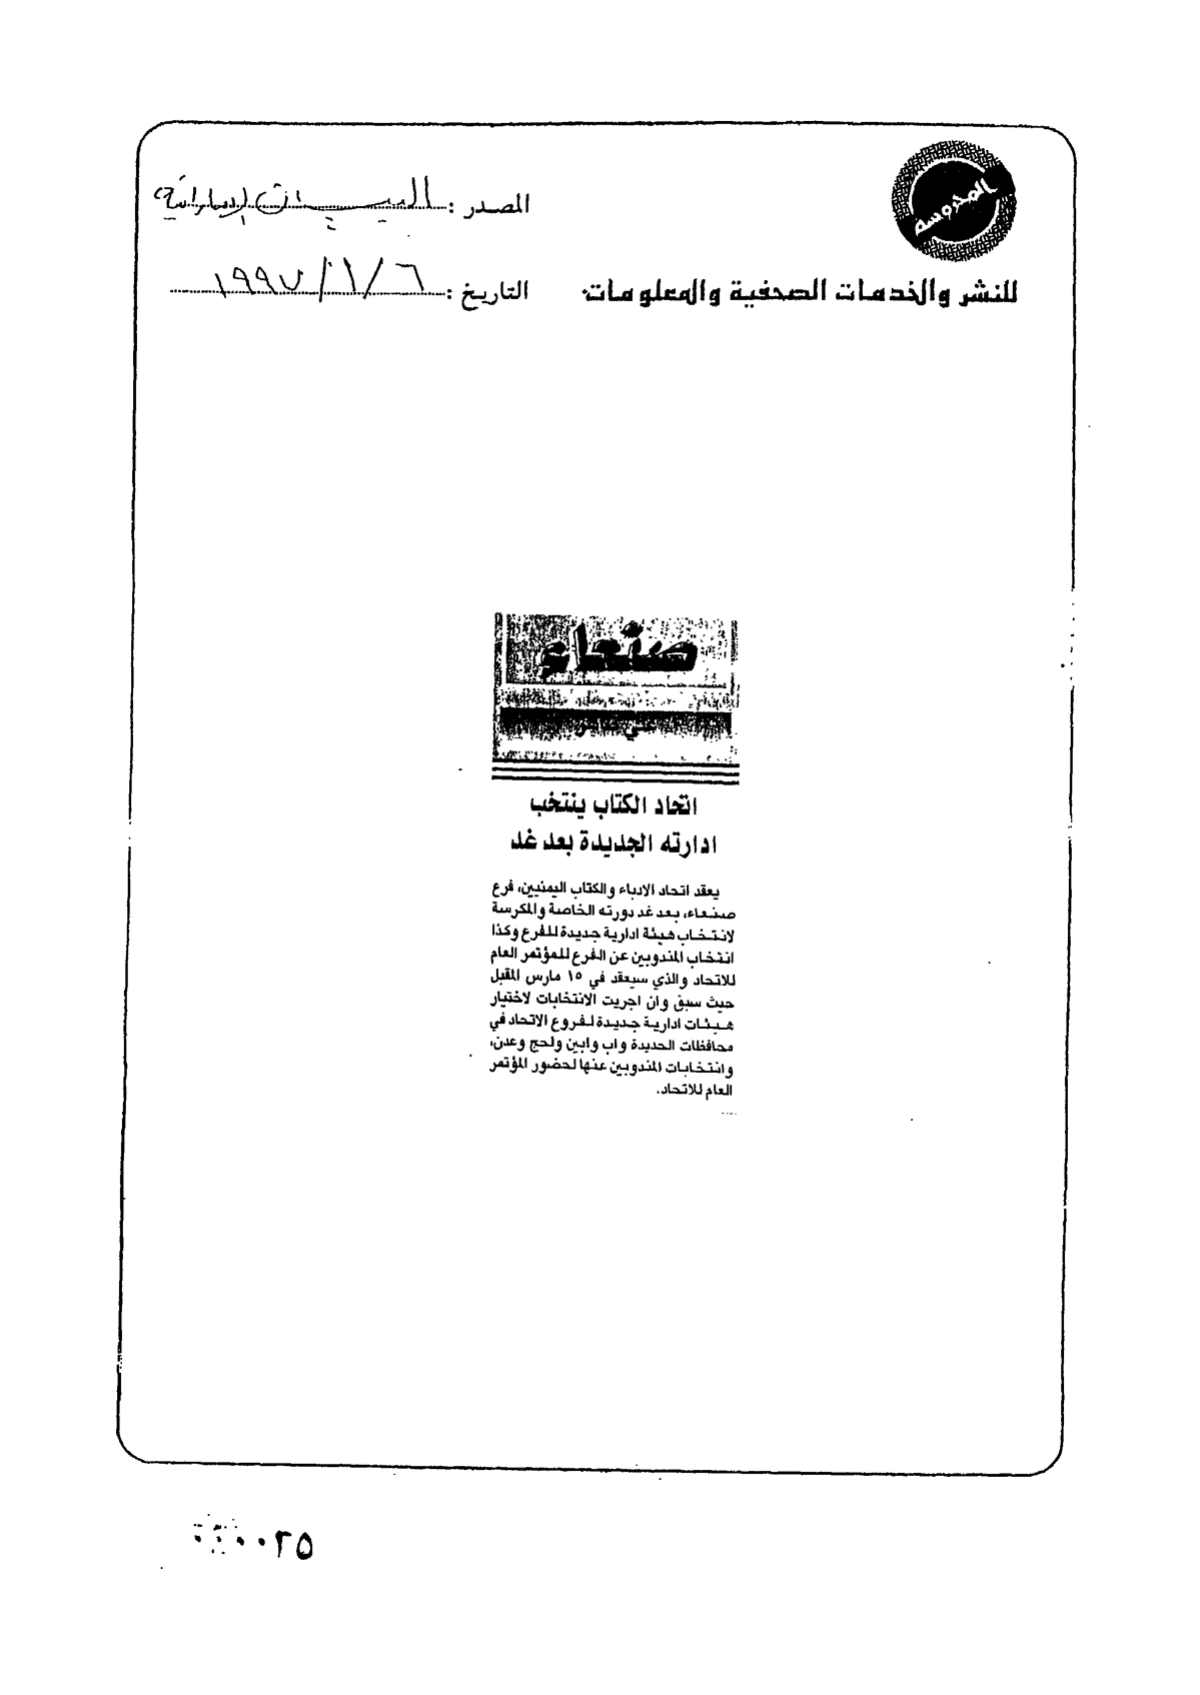 المحروسة
المصدر : البيان الإماراتية
للنشر والخدمات الصحفية والمعلومات
التاريخ : ٦ / ١ / ١٩٩٧
صنعاء
اتحاد الكتاب ينتخب
ادارته الجديدة بعد غد
يعقد اتحاد الادباء والكتاب اليمنيين، فرع
صنعاء، بعد غد دورته الخاصة والمكرسة
لانتخاب هيئة ادارية جديدة للفرع وكذا
انتخاب المندوبين عن الفرع للمؤتمر العام
للاتحاد والذي سيعقد في ١٥ مارس المقبل
حيث سبق وان اجريت الانتخابات لاختيار
هيئات ادارية جديدة لفروع الاتحاد في
محافظات الحديدة واب وابين ولحج وعدن،
وانتخابات المندوبين عنها لحضور المؤتمر
العام للاتحاد.